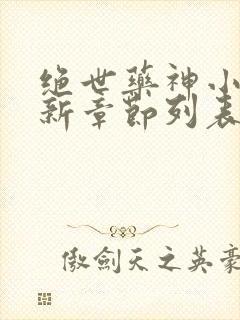 绝世藥神小
新章節列表
傲劍天之英豪